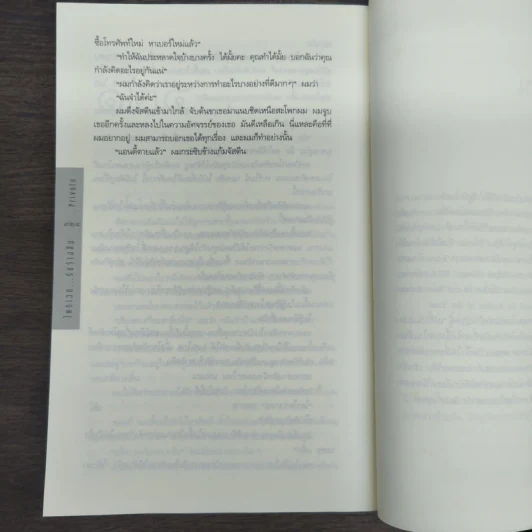 ซื้อโทรศัพท์ใหม่ หาเบอร์ใหม่แล้ว"
"ทำให้ฉันประหลาดใจบ้างบางครั้ง ได้มั้ยคะ คุณทำได้มั้ย บอกฉันว่าคุณ
กำลังคิดอะไรอยู่กันแน่"
"ผมกำลังคิดว่าเราอยู่ระหว่างการทำอะไรบางอย่างที่ดีมากๆ" ผมว่า
"ฉันจำได้ค่ะ"
ผมดึงจัสตินเข้ามาใกล้ จับต้นขาเธอมาแนบชิดเหนือสะโพกผม ผมจูบ
เธออีกครั้งและหลงไปในความอัศจรรย์ของเธอ มันดีเหลือเกิน นี่แหละคือที่ที่
ผมอยากอยู่ ผมสามารถบอกเธอได้ทุกเรื่อง และผมก็ทำอย่างนั้น
"แอนดี้ตายแล้ว" ผมกระซิบข้างแก้มจัสติน
ไพรเวท...
Private